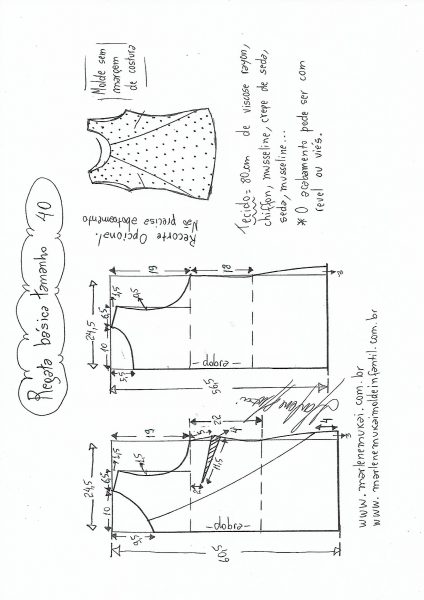 Regata básica tamanho 40
Molde sem
margem
de costura
Recorte Opcional.
Não precisa abotoamento
Tecido = 80cm de viscose rayon,
chiffon, musseline, crepe de seda,
seda, musseline...
* O acabamento pode ser com
revel ou viés.
24,5
10
6,5
1,5
19
18
0,5
5,5
-dobra-
56,5
3
24,5
10
6,5
1,5
19
22
1,5
5
4
11,5
2
4
9,5
-dobra-
60,5
3
www.marlenemukai.com.br
www.marlenemukaimoldeinfantil.com.br